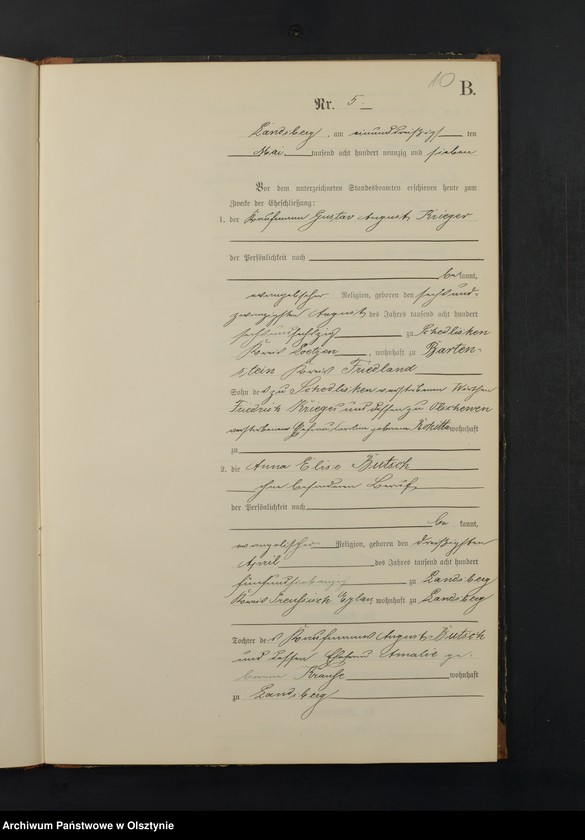 10
B.
Nr. 5.
Landsberg, am einunddreißigsten ten
Mai tausend acht hundert neunzig und sieben
Vor dem unterzeichneten Standesbeamten erschienen heute zum
Zwecke der Eheschließung:
1. der Kaufmann Gustav August Krieger
der Persönlichkeit nach
bekannt,
evangelischer Religion, geboren den sechsund-
zwanzigsten August des Jahres tausend acht hundert
sechsundsechzig zu Schedlisken
Kreis Loetzen, wohnhaft zu Barten-
stein Kreis Friedland
Sohn des zu Schedlisken verstorbenen Wirthen
Friedrich Krieger und dessen zu Olschewen
verstorbenen Ehefrau geborene wohnhaft
zu
2. die Anna Elise Butsch
ohne besonderen Beruf
der Persönlichkeit nach
be kannt,
evangelischer Religion, geboren den dreißigsten
April des Jahres tausend acht hundert
fünfundsiebenzig zu Landsberg
Kreis Preußisch Eylau, wohnhaft zu Landsberg
Tochter des Kaufmanns August Butsch
und dessen Ehefrau Amalie ge-
borene Krause wohnhaft
zu Landsberg
Archiwum Państwowe w Olsztynie